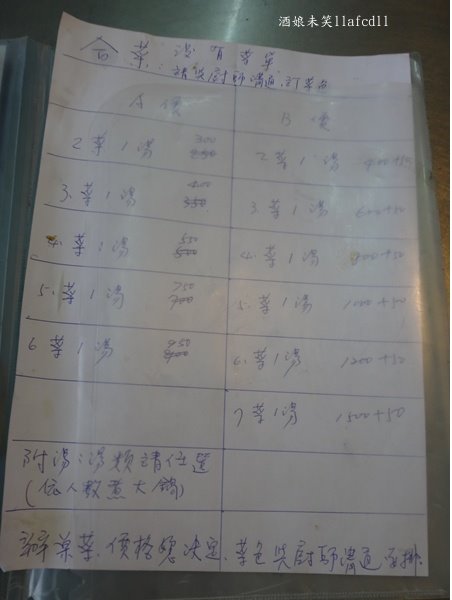 酒娘未笑llafcdll
合菜:沒有菜單
請與廚師溝通.訂菜色
A價 B價
2菜1湯 300 250 2菜1湯 400+50
3.菜1湯 400 350 3.菜1湯 600+50
4.菜1湯 550 500 4.菜1湯 800+50
5.菜1湯 750 700 5.菜1湯 1000+50
6菜1湯 950 900 6.菜1湯 1200+50
7菜1湯 1500+50
附湯:湯類請任選
(依人數煮大鍋)
辦桌菜.價格您決定.菜色與廚師溝通安排.